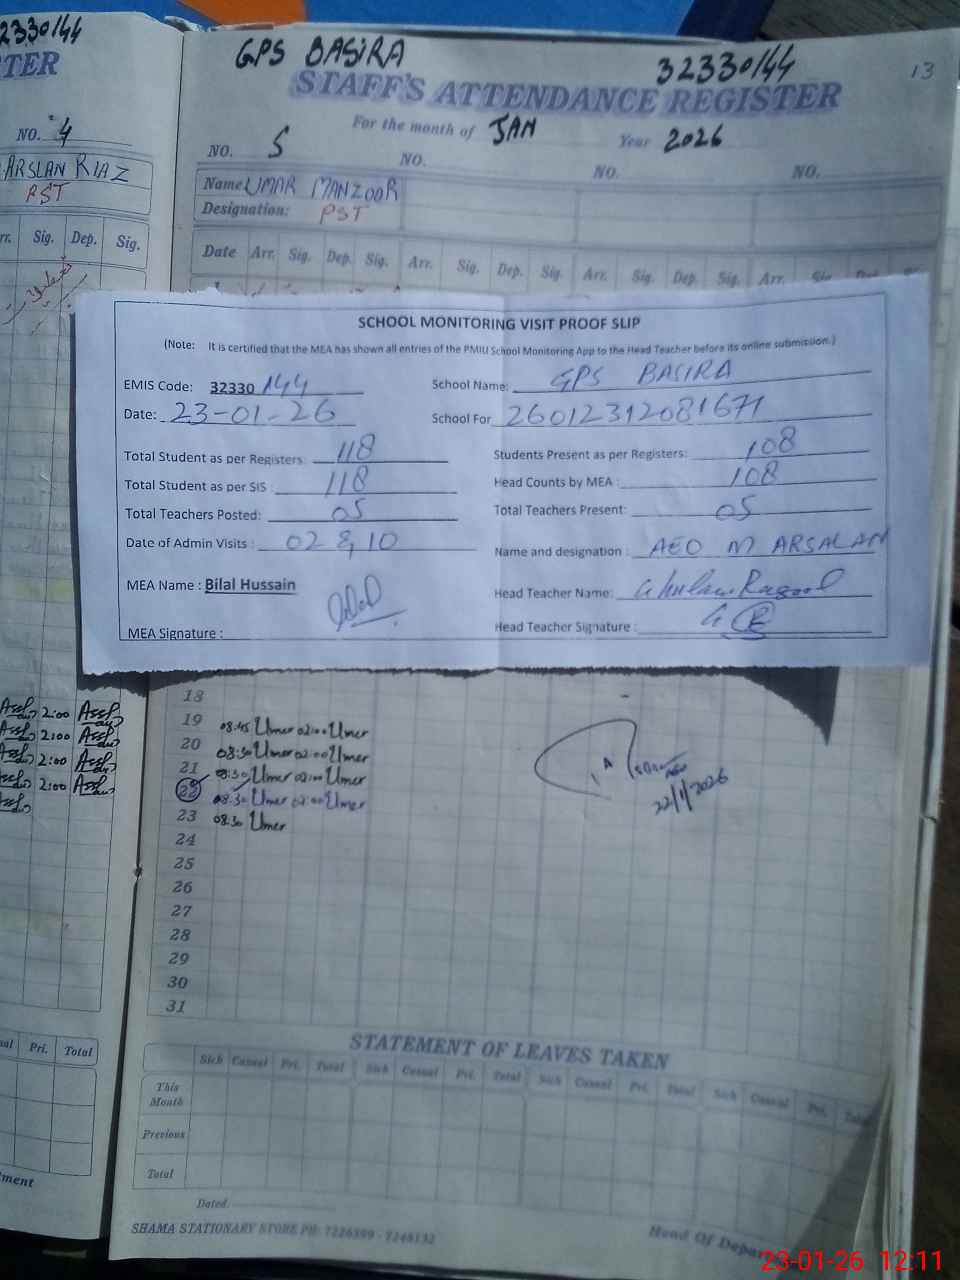 32330144
TER
NO. 4
ARSLAN RIAZ
PST
Arr. Sig. Dep. Sig.
GPS BASIRA 32330144 13
STAFF'S ATTENDANCE REGISTER
For the month of JAN Year 2026
NO. 5 NO. NO. NO.
Name UMAR MANZOOR
Designation: PST
Date Arr. Sig. Dep. Sig. Arr. Sig. Dep. Sig. Arr. Sig. Dep. Sig. Arr. Sig. Dep.
SCHOOL MONITORING VISIT PROOF SLIP
(Note: It is certified that the MEA has shown all entries of the PMIU School Monitoring App to the Head Teacher before its online submission.)
EMIS Code: 32330 144 School Name: GPS BASIRA
Date: 23-01-26 School For 26012312081671
Total Student as per Registers: 118 Students Present as per Registers: 108
Total Student as per SIS : 118 Head Counts by MEA : 108
Total Teachers Posted: 05 Total Teachers Present: 05
Date of Admin Visits : 02 & 10 Name and designation : AEO M ARSALAN
MEA Name : Bilal Hussain Head Teacher Name: Ghulam Rasool
MEA Signature : Head Teacher Signature :
2:00
2:00
2:00
2:00
18
19 08:45 Umer 02:00 Umer
20 08:30 Umer 02:00 Umer
21 08:30 Umer 02:00 Umer
22 08:30 Umer 02:00 Umer
22/1/2026
23 08:30 Umer
24
25
26
27
28
29
30
31
Pri. Total
STATEMENT OF LEAVES TAKEN
Sick Casual Pri. Total Sick Casual Pri. Total Sick Casual Pri. Total Sick Casual Pri. Total
This Month
Previous
Total
Dated.
SHAMA STATIONARY STORE PH: 7226599 - 7248132
Head Of Depar
23-01-26 12:11